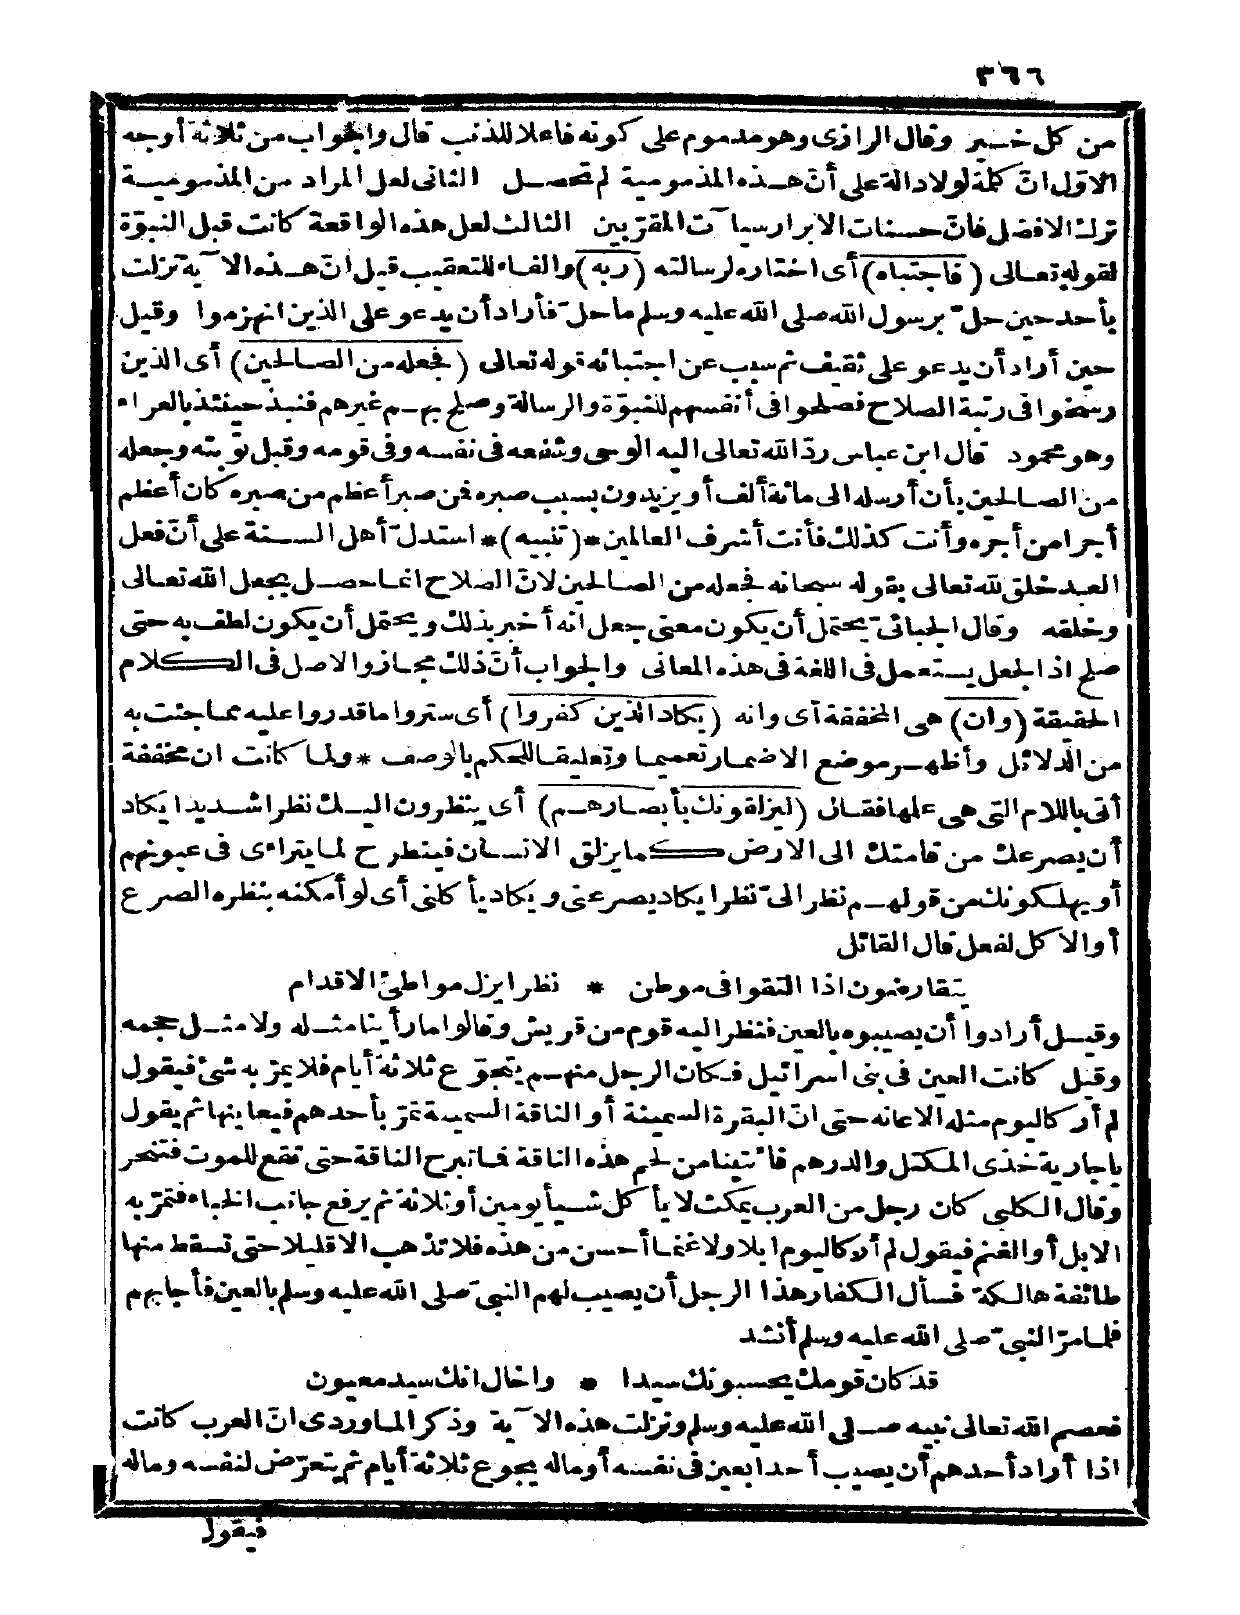 ٣٦٦
من كل خير وقال الرازى وهو مذموم على كونه فاعلا للذنب قال والجواب من ثلاثة أوجه
الاوّل انّ كلمة لولا دالة على أنّ هذه المذمومية لم تحصل الثانى لعل المراد من المذمومية
ترك الافضل فانّ حسنات الابرار سيآت المقرّبين الثالث لعل هذه الواقعة كانت قبل النبوّة
لقوله تعالى (فاجتباه) أى اختاره لرسالته (ربه) والفاء للتعقيب قيل انّ هذه الآية نزلت
بأحد حين حلّ برسول الله صلى الله عليه وسلم ما حلّ فأراد أن يدعو على الذين انهزموا وقيل
حين أراد أن يدعو على ثقيف ثم سبب عن اجتبائه قوله تعالى (فجعله من الصالحين) أى الذين
رسخوا فى رتبة الصلاح فصلحوا فى أنفسهم للنبوّة والرسالة وصلح بهم غيرهم فنبذ حينئذ بالعراء
وهو محمود قال ابن عباس ردّ الله تعالى اليه الوحى وشفعه فى نفسه وفى قومه وقبل توبته وجعله
من الصالحين بأن أرسله الى مائة ألف أو يزيدون بسبب صبره فمن صبر أعظم من صبره كان أعظم
أجرا من أجره وأنت كذلك فأنت أشرف العالمين *(تنبيه)* استدلّ أهل السنة على أنّ فعل
العبد خلق لله تعالى بقوله سبحانه فجعله من الصالحين لانّ الصلاح انما حصل بجعل الله تعالى
وخلقه وقال الجبائى يحتمل أن يكون معنى جعل انه أخبر بذلك ويحتمل أن يكون لطف به حتى
صلح اذ الجعل يستعمل فى اللغة فى هذه المعانى والجواب أنّ ذلك مجاز والاصل فى الكلام
الحقيقة (وان) هى المخففة أى وانه (يكاد الذين كفروا) أى ستروا ما قدروا عليه مما جئت به
من الدلائل وأظهر موضع الاضمار تعميما وتعليقا للحكم بالوصف * ولما كانت ان مخففة
أتى باللام التى هى علمها فقال (ليزلقونك بأبصارهم) أى ينظرون اليك نظرا شديدا يكاد
أن يصرعك من قامتك الى الارض كما يزلق الانسان فينطرح لما يتراءى فى عيونهم
أو يهلكونك من قولهم نظر الىّ نظرا يكاد يصرعنى ويكاد يأكلنى أى لو أمكنه بنظره الصرع
أو الاكل لفعل قال القائل
يتقارضون اذا التقوا فى موطن * نظرا يزل مواطئ الاقدام
وقيل أرادوا أن يصيبوه بالعين فنظر اليه قوم من قريش وقالوا ما رأينا مثله ولا مثل حججه
وقيل كانت العين فى بنى اسرائيل فكان الرجل منهم يتجوّع ثلاثة أيام فلا يمرّ به شئ فيقول
لم أر كاليوم مثله الا عانه حتى انّ البقرة السمينة أو الناقة السمينة تمرّ بأحدهم فيعاينها ثم يقول
يا جارية خذى المكتل والدرهم فأتينا من لحم هذه الناقة فما تبرح الناقة حتى تقع للموت فتنحر
وقال الكلبى كان رجل من العرب يمكث لا يأكل شيأ يومين أو ثلاثة ثم يرفع جانب الخباء فتمرّ به
الابل أو الغنم فيقول لم أر كاليوم ابلا ولا غنما أحسن من هذه فلا تذهب الا قليلا حتى تسقط منها
طائفة هالكة فسأل الكفار هذا الرجل أن يصيب لهم النبىّ صلى الله عليه وسلم بالعين فأجابهم
فلما مرّ النبىّ صلى الله عليه وسلم أنشد
قد كان قومك يحسبونك سيدا * واخال انك سيد معيون
فعصم الله تعالى نبيه صلى الله عليه وسلم ونزلت هذه الآية وذكر الماوردى انّ العرب كانت
اذا أراد أحدهم أن يصيب أحدا بعين فى نفسه أو ماله يجوع ثلاثة أيام ثم يتعرّض لنفسه وماله
فيقول